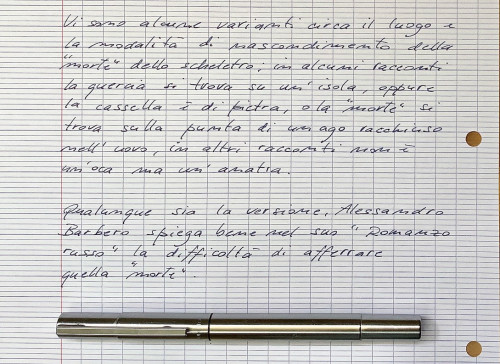 Vi sono alcune varianti circa il luogo e
la modalità di nascondimento della
"morte" dello scheletro; in alcuni racconti
la quercia si trova su un'isola, oppure
la cassella è di pietra, o la "morte" si
trova sulla punta di un ago racchiuso
nell'uovo, in altri racconti non è
un'oca ma un'anatra.
Qualunque sia la versione, Alessandro
Barbero spiega bene nel suo "Romanzo
russo" la difficoltà di afferrare
quella "morte".